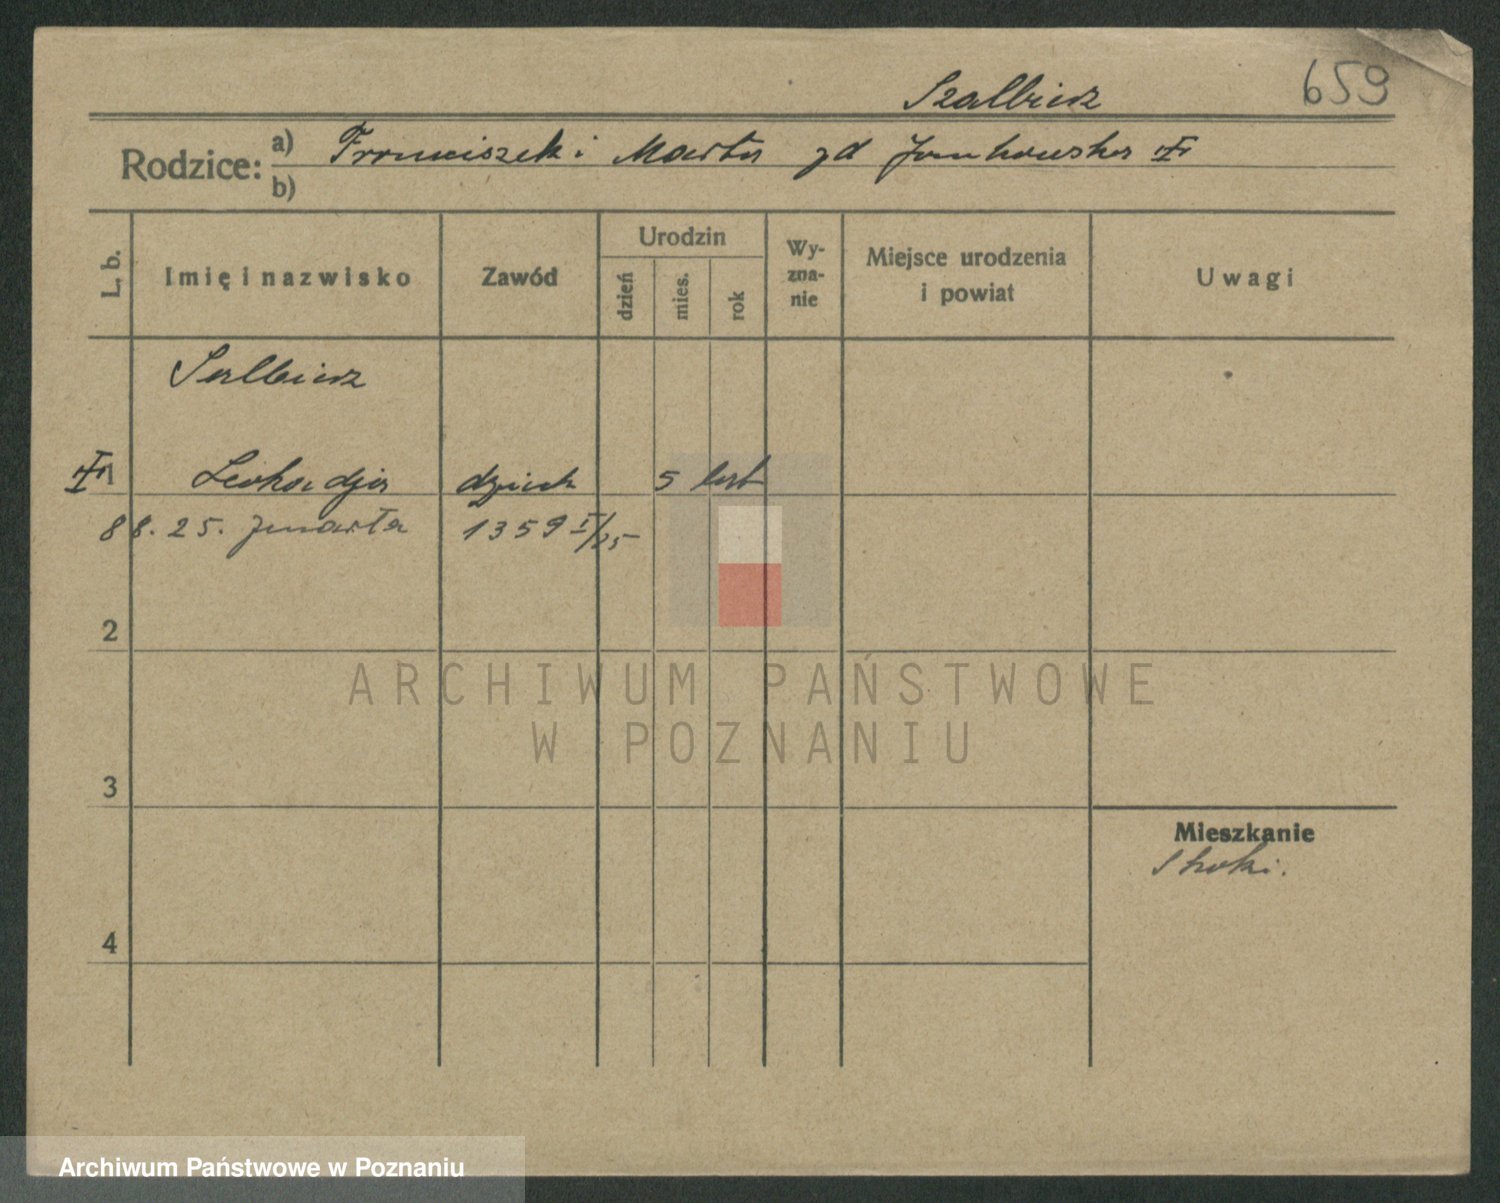 659
Szalbierz
Rodzice: a) Franciszek i Marta zd Jankowska
b)
L. b. Imię i nazwisko Zawód Urodzin dzień mies. rok Wy-zna-nie Miejsce urodzenia i powiat Uwagi
Salbierz
1 Leokadja dzieck 5 lat
8 8. 25. zmarła 1359 I/25
2
ARCHIWUM PAŃSTWOWE
W POZNANIU
3
Mieszkanie
4
Archiwum Państwowe w Poznaniu